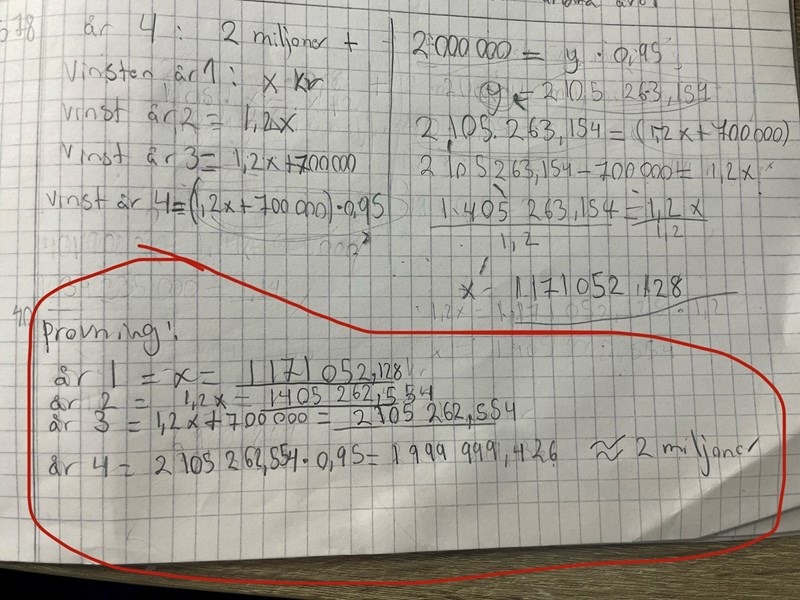 578
år 4: 2 miljoner +
Vinsten år 1: x kr
vinst år 2 = 1,2x
vinst år 3 = 1,2x+700000
vinst år 4=(1,2x+700 000)·0,95
2 000 000 = y · 0,95
y = 2 105 263,154
2 105 263,154 = (1,2x+700000)
2 105 263,154 - 700 000 = 1,2x
1 405 263,154 = 1,2 x
1,2 1,2
x = 1 171 052,128
Provning:
år 1 = x = 1 171 052,128
år 2 = 1,2x = 1405 262,554
år 3 = 1,2x+700000 = 2105 262,554
år 4 = 2 105 262,554·0,95= 1 999 999,426 ≈ 2 miljoner